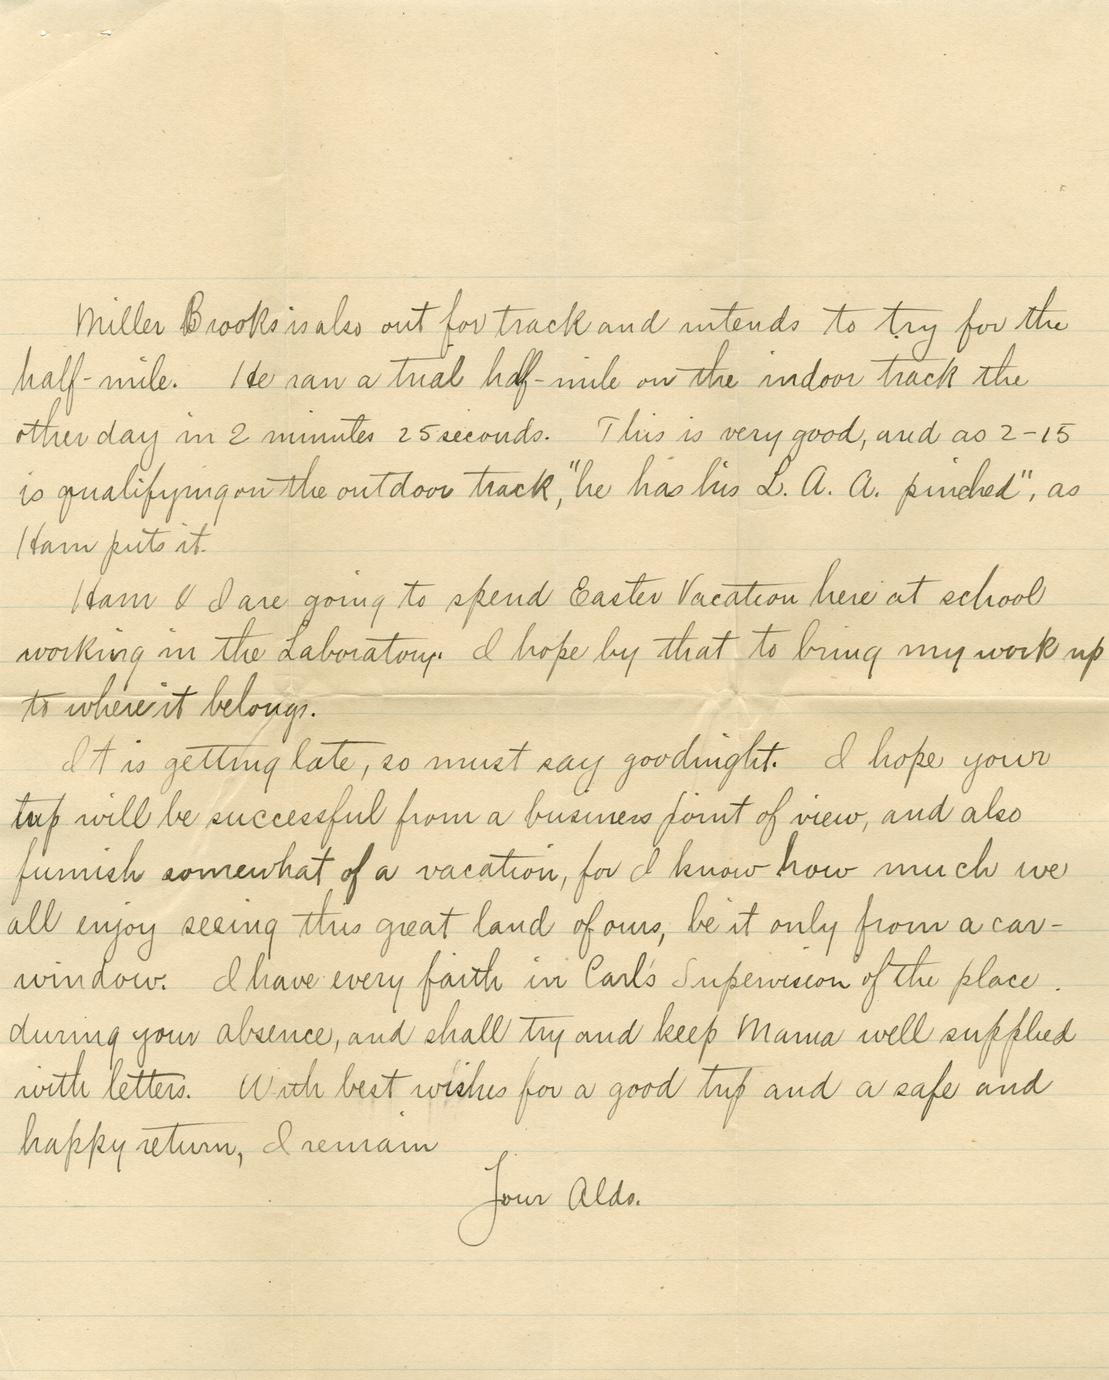 Miller Brooks is also out for track and intends to try for the
half-mile. He ran a trial half-mile on the indoor track the
other day in 2 minutes 25 seconds. This is very good, and as 2-15
is qualifying on the outdoor track, "he has his L. A. A. pinched", as
Ham puts it.
Ham & I are going to spend Easter Vacation here at school
working in the Laboratory. I hope by that to bring my work up
to where it belongs.
It is getting late, so must say goodnight. I hope your
trip will be successful from a business point of view, and also
furnish somewhat of a vacation, for I know how much we
all enjoy seeing this great land of ours, be it only from a car-
window. I have every faith in Carl's Supervision of the place.
during your absence, and shall try and keep Mama well supplied
with letters. With best wishes for a good trip and a safe and
happy return, I remain
Your Aldo.